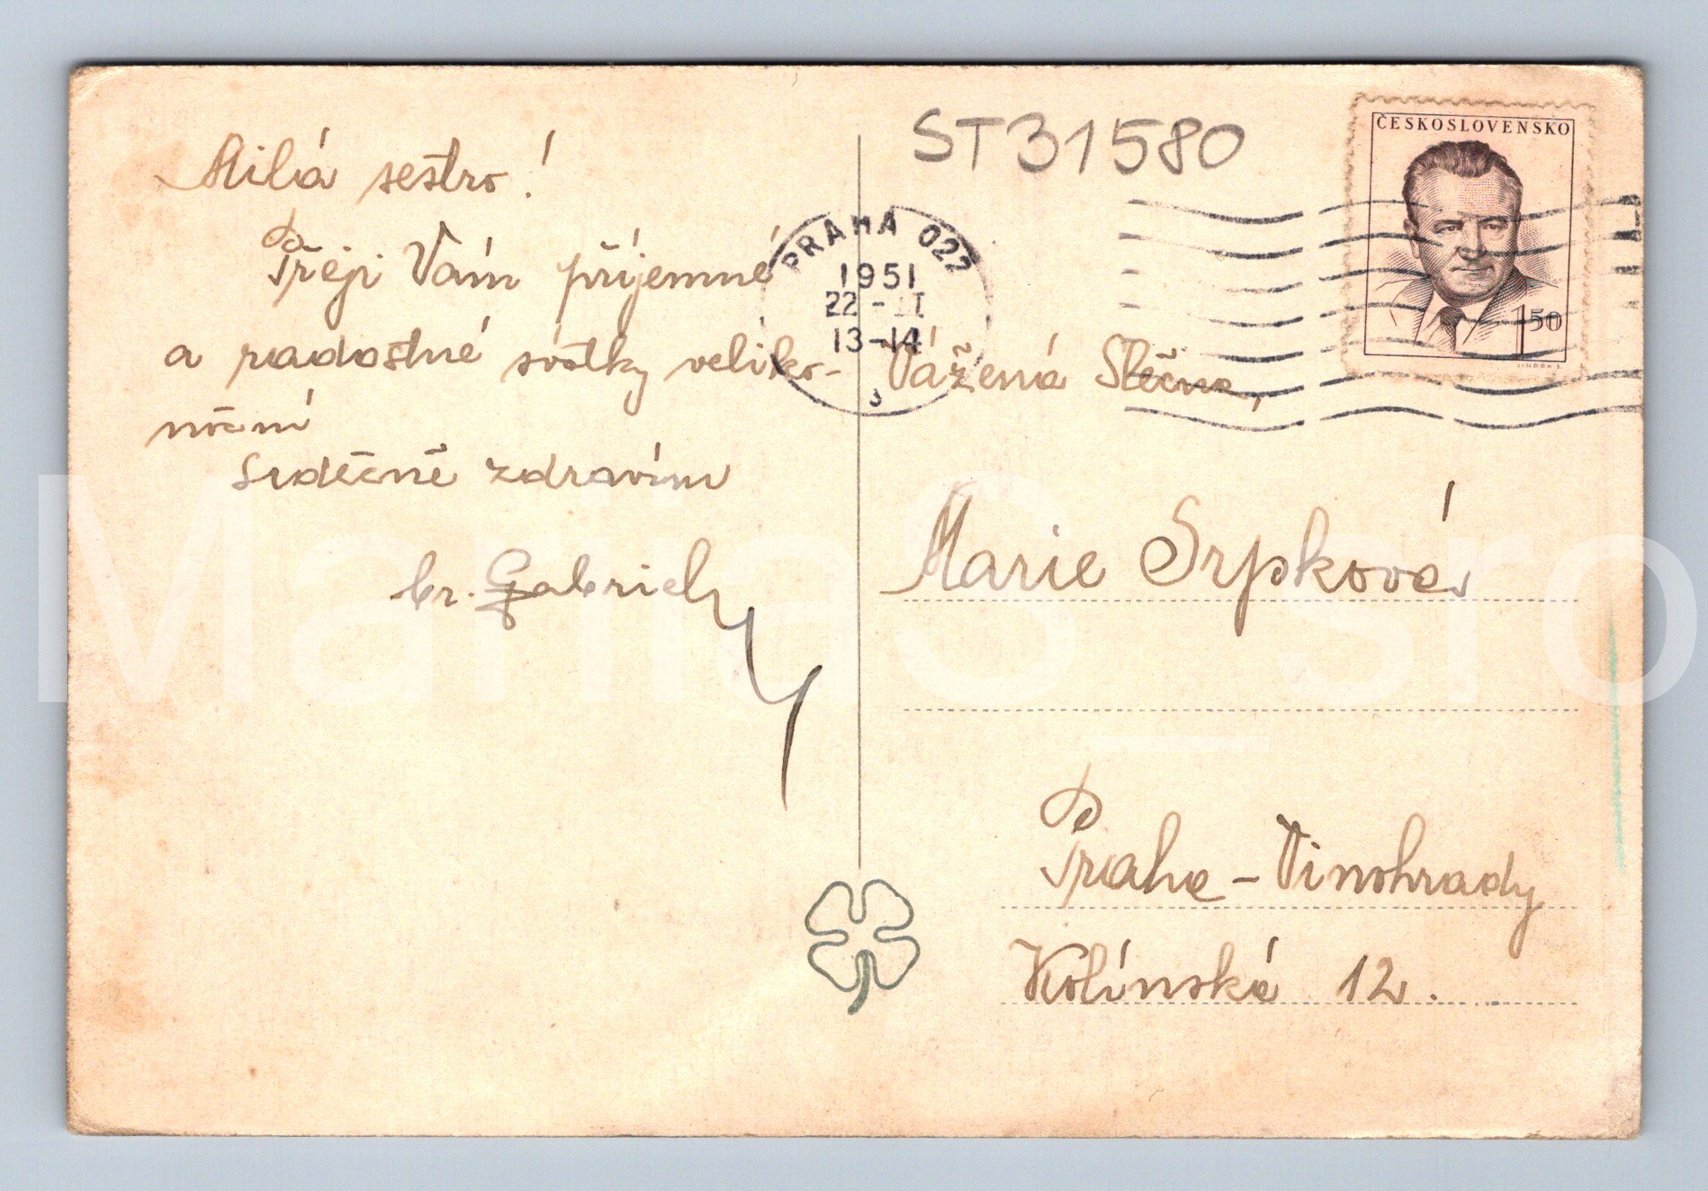 ST31580
ČESKOSLOVENSKO
1 50
PRAHA 022
1951
22 -
13-14
3
Milá sestro!
Přeji Vám příjemné
a radostné svátky veliko-
noční
Srdečně zdravím
br. Gabriel
Vážená Slečna,
Marie Srpková
Praha - Vinohrady
Kolínská 12.